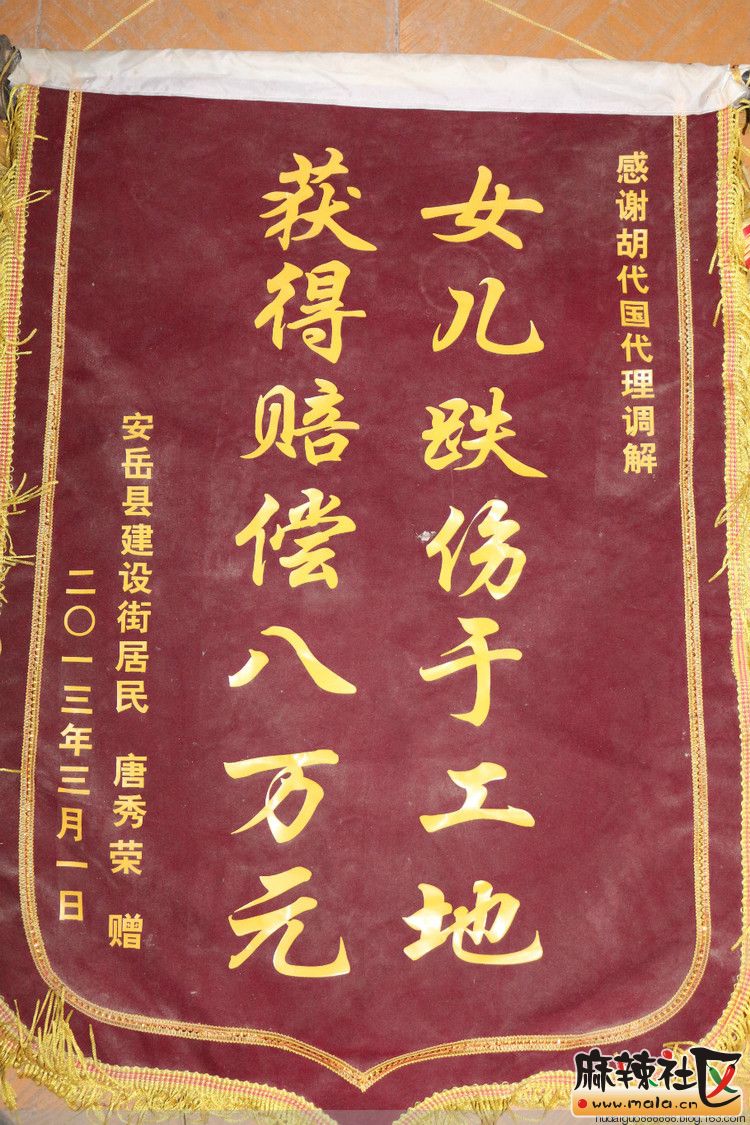 感谢胡代国代理调解
女儿跌伤于工地
获得赔偿八万元
安岳县建设街居民 唐秀荣 赠
二〇一三年三月一日
麻辣社区
www.mala.cn
hudaiguo888888.blog.163.com